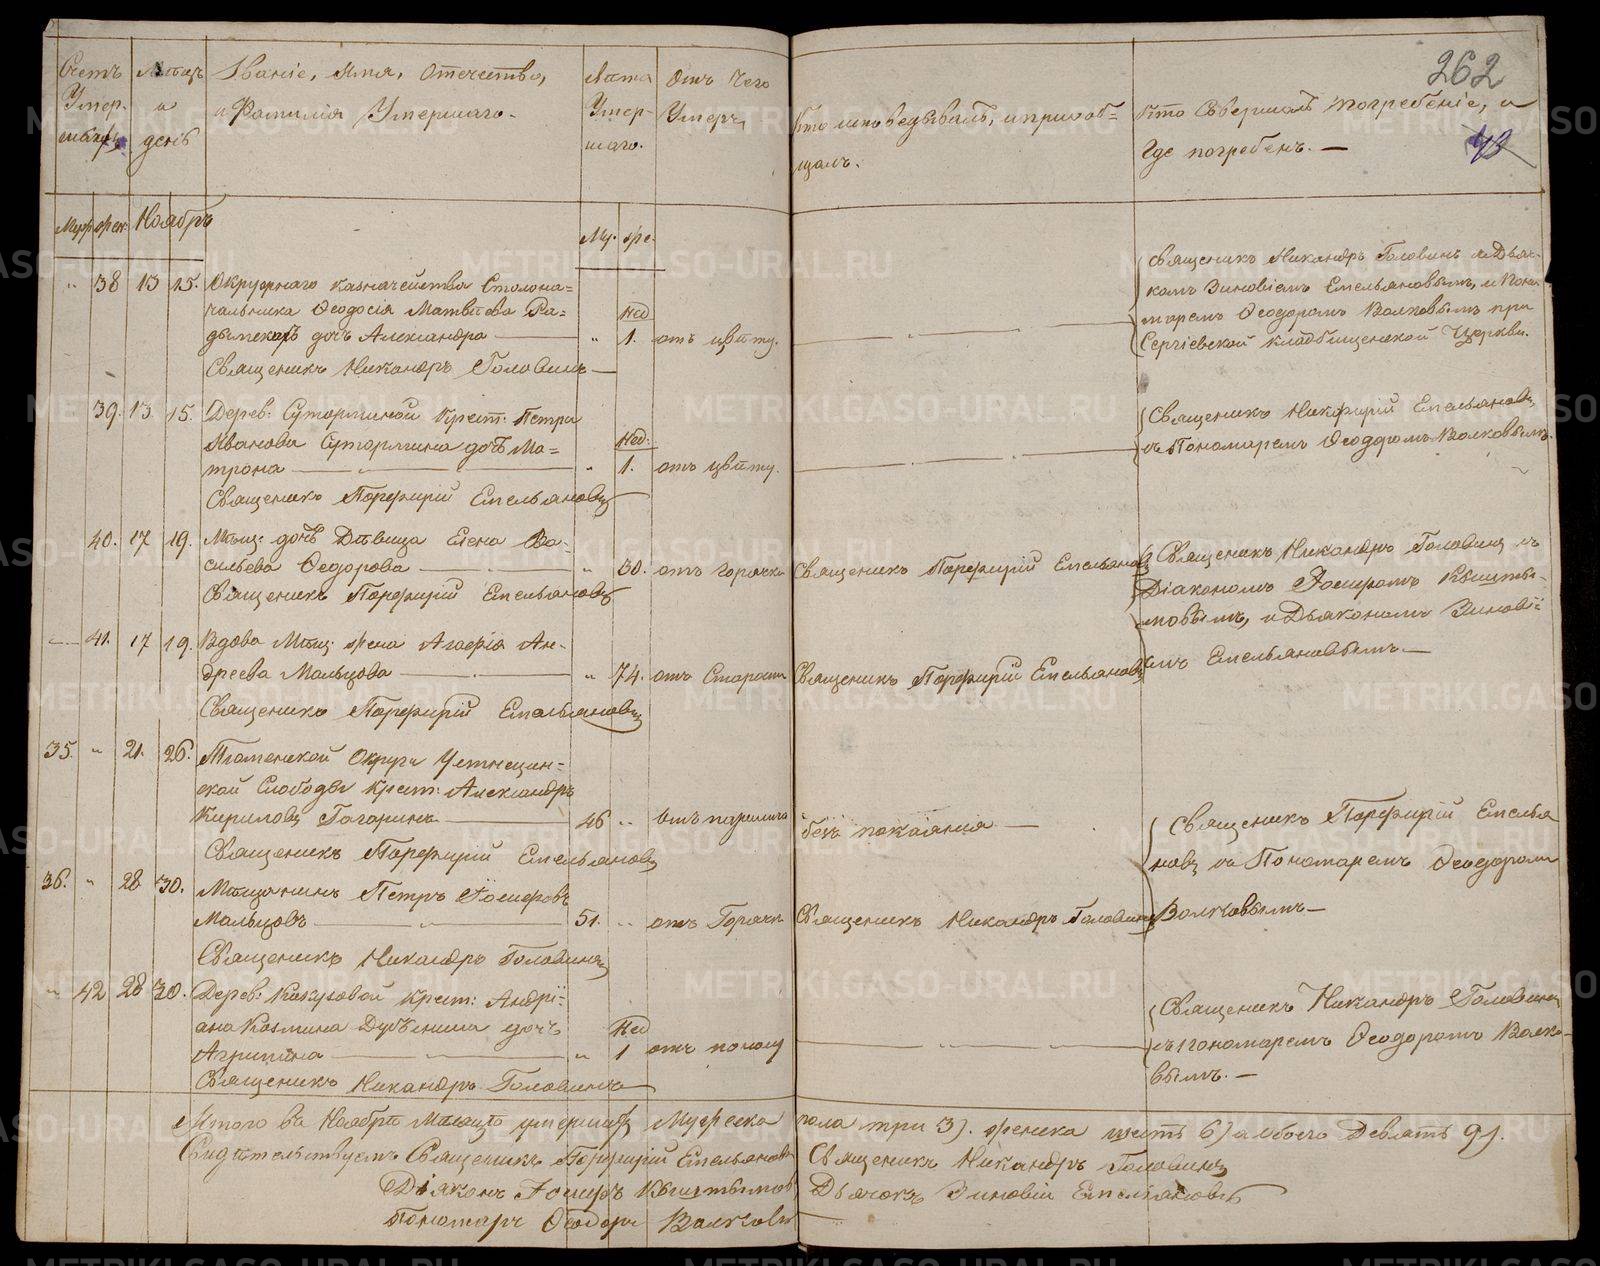 262
43
Счетъ Умер-шихъ
Мѣсяцъ и день
Званіе, Имя, Отечество,
и Фамилія Умершаго.
Лѣта Умер-шаго.
Отъ Чего Умеръ
Кто исповѣдывалъ, и приоб=
щалъ.
Кто Совершалъ погребеніе, и
Где погребенъ. —
Муж. жен. Ноябрь
Му. же.
" 38 13 15. Окружнаго казначейства Столона=
чальника Феодосія Матвѣева Ра=
дочь Александра — " Нед 1. отъ цвѣту.
Священикъ Никандръ Головинъ —
Священикъ Никандръ Головинъ съ Дьяч-
комъ Зиновіемъ Емельяновымъ, и Поно-
маремъ Феодоромъ Волковымъ при
Сергіевской кладбищенской Церкви.
39. 13 15. Дерев: Суторминой Крест: Петра
Иванова Сутормина дочь Ма=
трона — " Нед: 1. отъ цвѣту.
Священикъ Порфирій Емельяновъ
Священикъ Порфирій Емельяновъ
съ Пономаремъ Феодоромъ Волковымъ.
40. 17 19. Мѣщ: дочь Дѣвица Елена Ва-
сильева Феодорова — " 30. отъ горячки Священикъ Порфирій Емельяновъ
Священикъ Порфирій Емельяновъ
Священикъ Никандръ Головинъ съ
Діакономъ Іосифомъ Кышты-
мовымъ, и Дьякономъ Зинові-
емъ Емельяновымъ. —
— 41. 17 19. Вдова Мѣщ: жена Агафія Ан-
дреева Мальцова — " 74. отъ Старости Священикъ Порфирій Емельяновъ
Священикъ Порфирій Емельяновъ
35. " 21. 26. Тюменской Округи Устницин=
ской Слободы Крест: Александръ
Кириловъ Гагаринъ — 46 " отъ паралича безъ покаянія —
Священикъ Порфирій Емельяновъ
Священикъ Порфирій Емелья
новъ съ Пономаремъ Феодоромъ
Волковымъ —
36. " 28 30. Мѣщанинъ Петръ Іосифовъ
Мальцовъ — 51. " отъ Горячки Священикъ Никандръ Головинъ
Священикъ Никандръ Головинъ
" 42 28 30. Дерев: Кокузовой Крест: Андрі=
ана Козмина Дубѣнина дочь
Агрипина — " Нед 1 отъ поносу
Священикъ Никандръ Головинъ
Священикъ Никандръ Головинъ
съ пономаремъ Феодоромъ Волко-
вымъ. —
Итого въ Ноябрѣ Мѣсяцѣ умершихъ Мужеска пола три 3). женска шесть 6) а обоего Девять 9).
Свидѣтельствуемъ Священикъ Порфирій Емельяновъ Священикъ Никандръ Головинъ
Діяконъ Іосифъ Кыштымовъ Дьячокъ Зиновій Емельяновъ
Пономарь Феодоръ Волковъ
METRIKI.GASO-URAL.RU